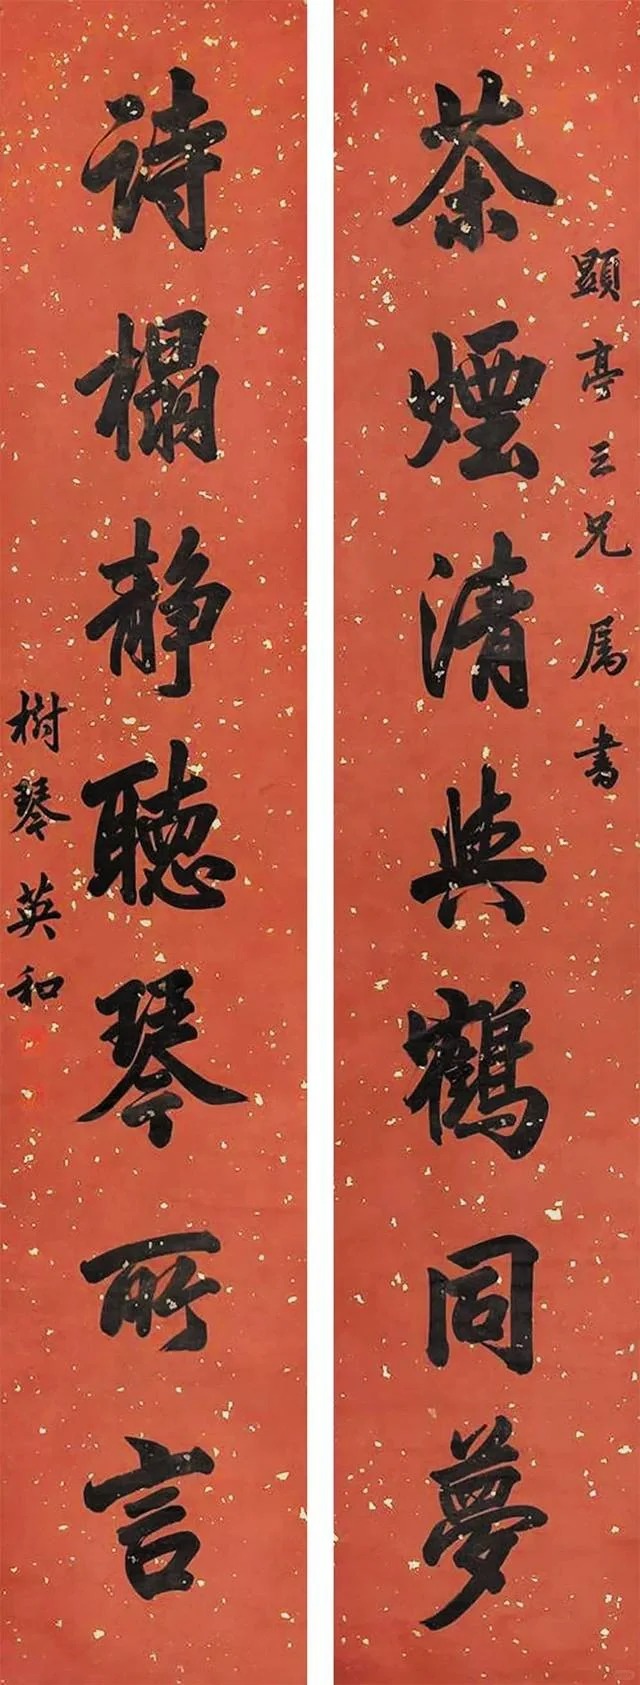 顯亭三兄屬書
茶煙清與鶴同夢
詩榻靜聽琴所言
樹琴英和